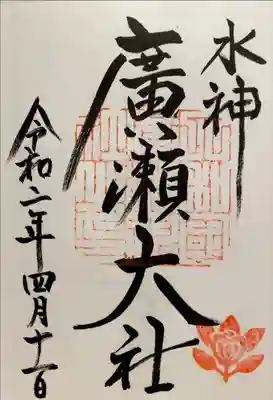 水神
廣瀬大社
令和二年四月十一日